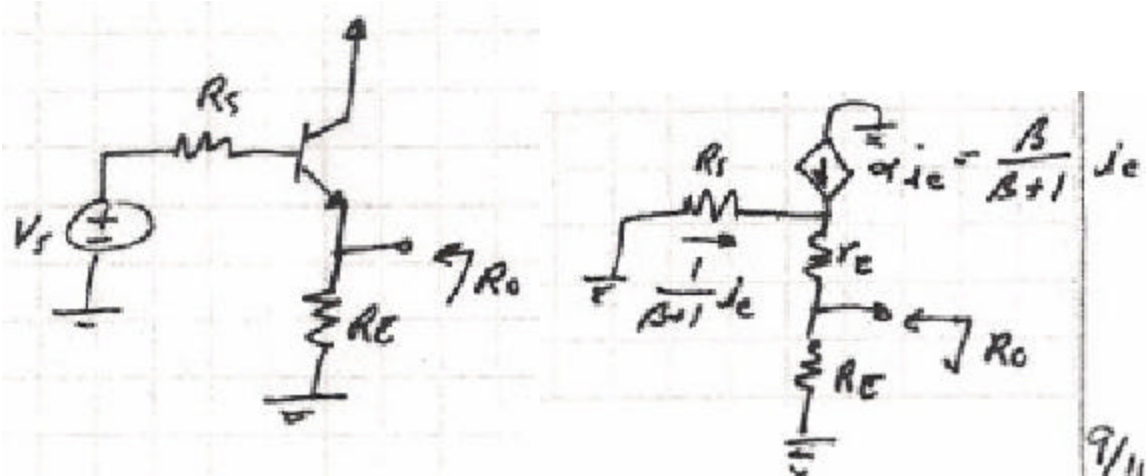 Rs
Vs
+
−
Ro
RE
Rs
αie = β/β+1 ie
1/β+1 ie
rE
Ro
RE